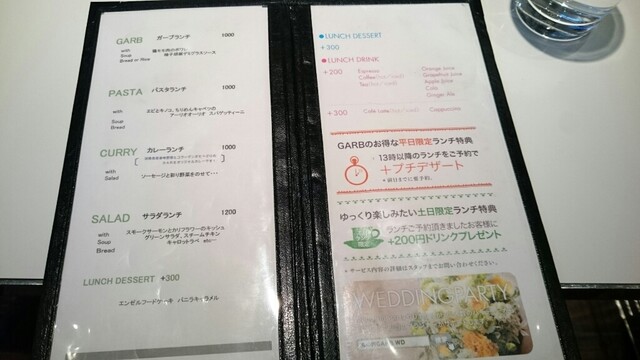 GARB ガーブランチ 1000
with
Soup
Bread or Rice
PASTA パスタランチ 1000
with
Soup
Bread
エビとキノコ、ちりめんキャベツの
アーリオオーリオ スパゲッティーニ
CURRY カレーランチ 1000
with
Salad
ソーセージと彩り野菜をのせて・・・
SALAD サラダランチ 1200
with
Soup
Bread
スモークサーモンとカリフラワーのキッシュ
グリーンサラダ、スチームチキン
キャロットラペ etc…
LUNCH DESSERT +300
エンゼルフードケーキ バニラキャラメル
LUNCH DESSERT
+300
LUNCH DRINK
+200 Espresso Orange Juice
Grapefruit Juice
Apple Juice
Cola
Ginger Ale
+300 Cappuccino
GARBのお得な平日限定ランチ特典
13時以降のランチをご予約で
＋プチデザート
ゆっくり楽しみたい土日限定ランチ特典
ランチご予約頂きましたお客様に
+200円ドリンクプレゼント
＊サービス内容の詳細はスタッフまでお問い合わせください。
WEDDING PARTY